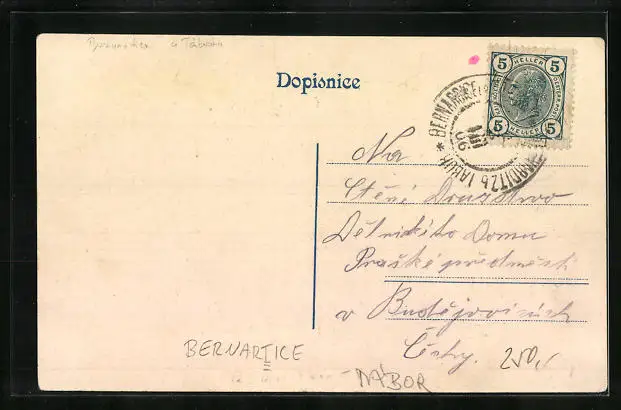 u Tábora
Dopisnice
5 HELLER 5
5 HELLER 5
BERNARTICE
BERNARDITZ b. TABOR
VIII
06
Na
Ctěné Družstvo
Dělnického Domu
Pražské předměstí
v Budějovicích
Čechy.
250,
BERNARTICE
TÁBOR